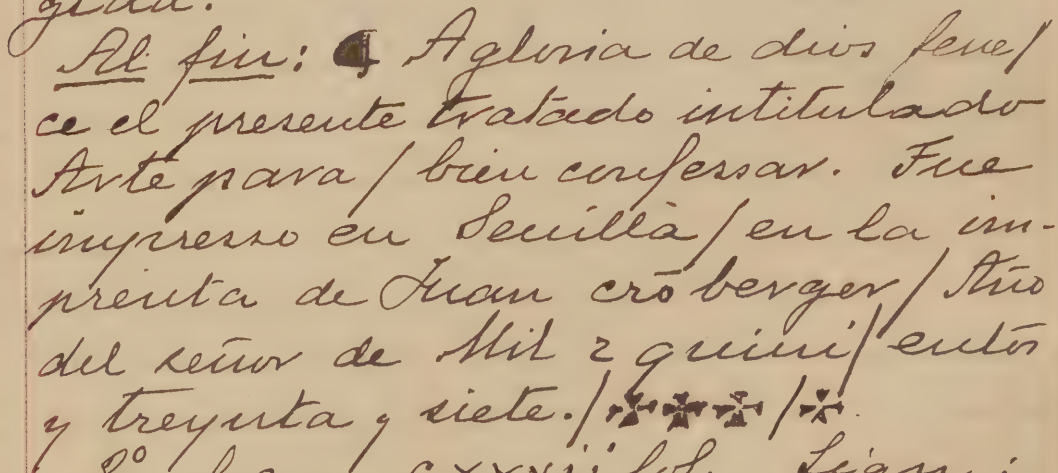 Al fin: ¶ A gloria de dios fene/
ce el presente tratado intitulado
Arte para / bien confessar. Fue
impresso en Seuilla / en la im-
prenta de Juan crōberger / Año
del señor de Mil ⁊ quini/entos
y treynta y siete. / ✠✠✠ / ✠.